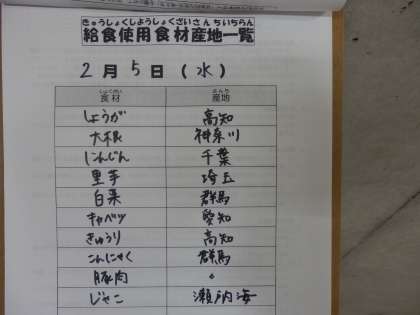 きゅうしょくしようしょくざいさんちいちらん
給食使用食材産地一覧
2月5日(水)
しょくざい さんち
食材 産地
しょうが 高知
大根 神奈川
にんじん 千葉
里芋 埼玉
白菜 群馬
キャベツ 愛知
きゅうり 高知
こんにゃく 群馬
豚肉 〃
じゃこ 瀬戸内海